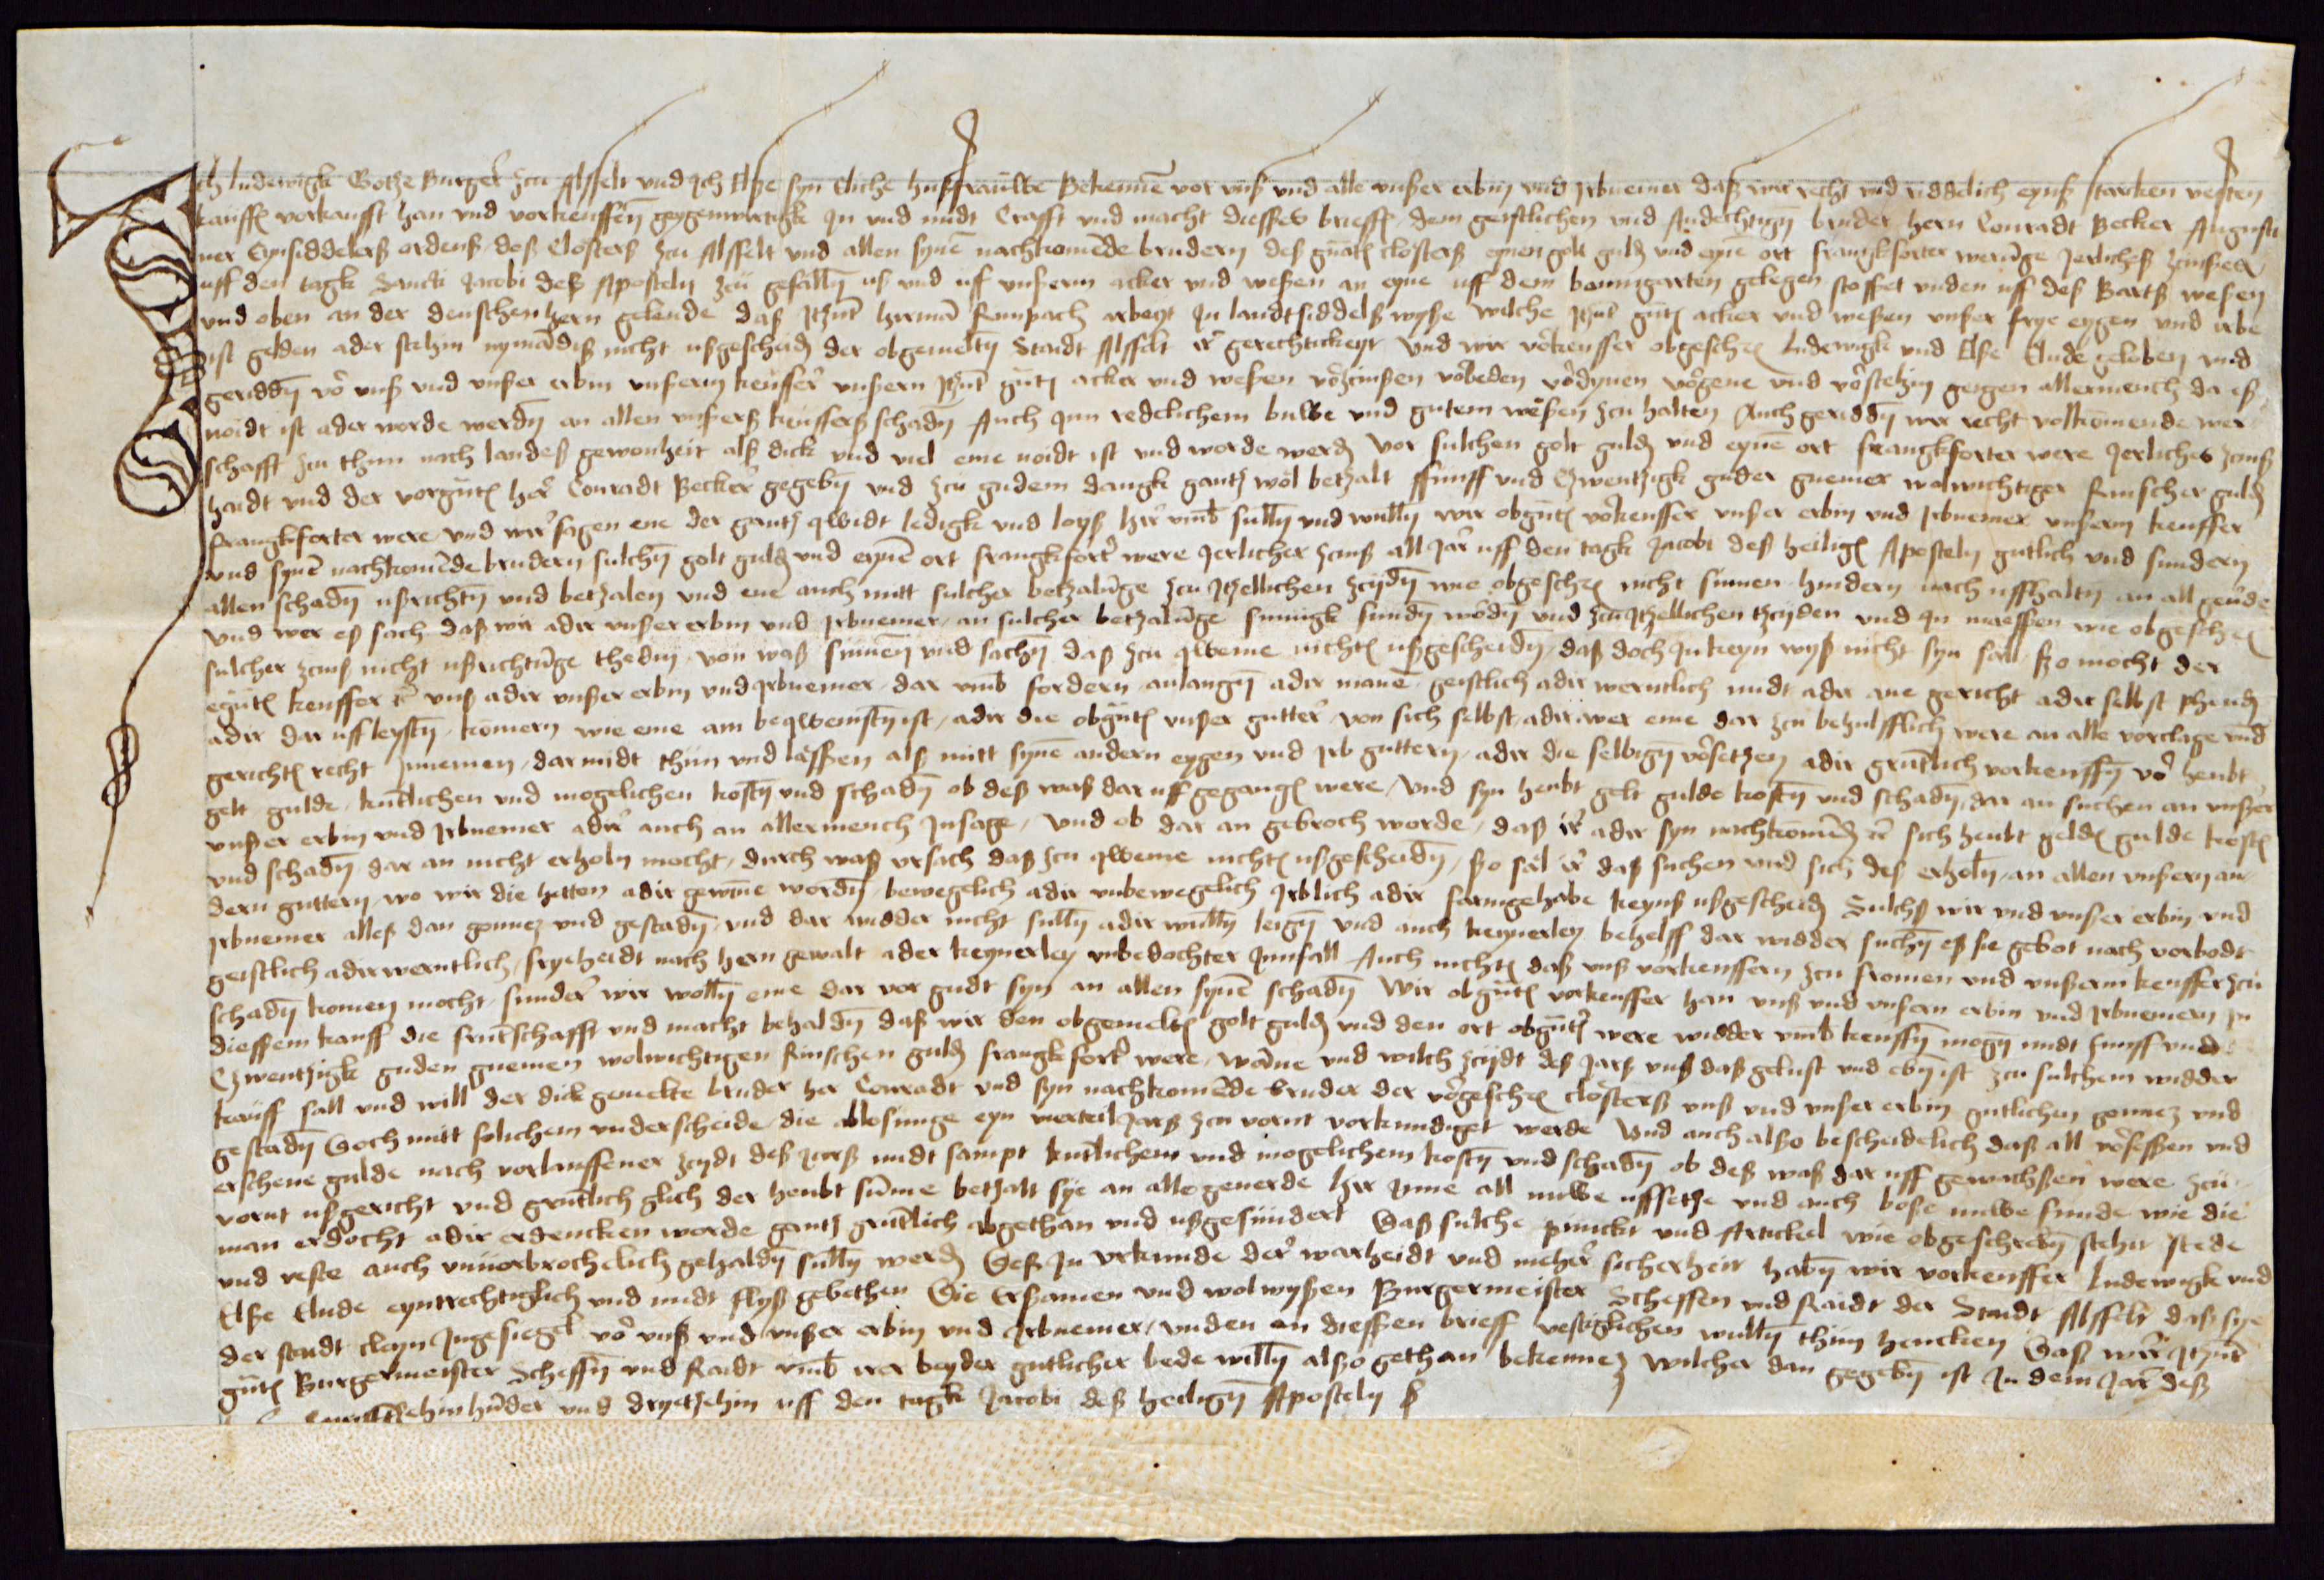 Ich ludewigk Gotze Burger zcu Alsfelt und Ich Elße syn Eliche hußfrauwe Bekennē vor unß und alle unßer erbin und Irbnemer daß wir recht und riddelich eynß starcken vesten
kauffs vorkaufft han und vorkeuffen geygenwirtigk In und midt Crafft und macht diesses brieffs dem geistlichen und Andechtigen bruder hern Conradt Becker Augusti
ner Eynsiddelerß ordenß deß Closterß zcu Alsfelt und allen synē nachkomēde brudern deß gnātē closterß eynen golt guldē und eynē ort frangkforter werūge Jerlicheß zcinßeß
uff den tagk Sancti Jacobi deß Aposteln zcu gefallen uß und uff unßerm acker und weßen an eyne uff dem baumgarten gelegen stosset unden uff deß Bartß weßen
und oben an der deuschen hern gelende daß Itzūt hirmā Rinpach arbeyt In landtsiddelß wyße wilche Itzūt gūtē acker und weßen unßer frye eygen und irbe
ist gelden ader stehin nymādiß nicht ußgescheidē der obgemelten Stadt Alsfelt ir gerechtickeyt Und wir vorkeuffer obgeschē Ludewigk und Elße Elude geloben und
geridden vor unß und unßer erbin unßerm keuffer unßern Itzūt gūtē acker und weßen vorzcinßen vorbeden vordynen vorgene und vorstehin geigen allermenich da eß
noidt ist ader worde werden an allen unßerß keufferß schaden Auch Inn redelichem buwe und gutem weßen zcu halten Auch geridden wir recht volkomende wer
schafft zcu thun nach landeß gewonheit alß dick und viel eme noidt ist und worde werdē Vor sulchen golt guldē und eynē ort frangkforter were Jerlicheß zcinß
hadt unß der vorgūtē her Conradt Becker gegeben und zcu gudem dangk gantz wol betzalt ffunff und Czwentzigk guder gnemer wolwichtiger Rinscher guldē
frangkforter were und wir sagen ene der gantz qwidt ledigk und loyß hir umb sullen und wullen wir obgūtē vorkeuffer unßer erbin und Irbnemer unßerm keuffer
und synē nachkomēde brudern sulchen golt guldē und eynē ort frangkforter were Jerlicher zcinß all Jar uff den tagk Jacobi deß heiligē Aposteln gutlich und sundern
allen schaden ußrichten und betzalen und ene auch mitt sulcher betzalūge zcu Itzellichen zcyden wie obgeschē nicht sümen hindern nach uffhalten an all geūde
Und wer eß sach daß wir adir unßer erbin und Irbnemer an sulcher betzalūge sumigk funden worden und zcu Itzellichen tzyden und In maessen wie obgeschē
sulcher zcinß nicht ußrichtūge theden von waß sinnen und sachen daß zcu qweme nichtē ußgescheiden daß doch In keyn wyß nicht syn sall ßo mocht der
egūtē keuffer er unß adir unßer erbin und Irbnemer dar umb fordern anlangen adir manē geistlich adir werntlich midt adir ane gericht adir selbst phendē
adir dar uff leysten komern wie eme am beqwemsten ist adir die obgūtē unßer gutter von sich selbst adir wer eme dar zcu behulfflich were an alle vorclage und
gerichtē recht Innemen dar midt thun und laessen alß mitt synē andern eygen und Irb guttern adir die selbigen vorsetzen adir grūtlich vorkeuffen vor heubt
gelt gulde kūtlichen und mogelichen kosten und schaden ob deß waß dar uff gegangē were Und syn heubt gelt gulde kosten und schaden dar an suchen an unßer
unßer erbin und Irbnemer adir auch an allermenich Insage Und ob dar an gebroch worde daß ir adir syn nachkomēdē er sich heubt geldeß gulde kostē
und schaden dar an nicht erholn mocht durch waß ursach daß zcu qweme nichtē ußgescheiden ßo sal ir daß suchen und sich deß erholn an allen unßern an
dern guttern wo wir die hetten adir gewūne worden bewegelich adir unbewegelich Irblich adir farnngehabe keynß ußgescheidē Sulchß wir und unßer erbin und
Irbnemer alleß dan gonnen und gestaden und dar widder nicht sullen adir wullen leigen und auch keynerley behelff dar widder suchen eß sie gebot nach vorbodt
geistlich adir werntlich fryeheidt nach hern gewalt ader keynerley unbedochter Innfall Auch nichtē daß unß vorkeuffern zcu fromen und unßerm keuffer zcu
schaden komen mocht sunder wir wollen eme dar vor gudt syn an allen synē schaden Wir obgūtē vorkeuffer han unß und unßern erbin und Irbnemern In
diessem kauff die frūtschafft und macht behalden daß wir den obgemeltē golt guldē und den ort obgūter were widder umb keuffen mogen midt funff und
Czwentzigk guden gnemen wolwichtigen Rinschen guldē frangkforter were wāne und wilch zcydt deß Jarß unß daß gelust und eben ist zcu sulchem widder
kauff sall und will der dick gemelte bruder her Conradt und syn nachkomēde bruder der vorgeschē closterß unß und unßer erbin gutlichen gonnen und
gestaden Doch mitt solichem underscheide die ablosunge eyn vierteil Jarß zcu vornt vorkundiget werde Und auch alßo bescheidelich daß all vorsessen und
erschene gulde nach vorlauffener zcydt deß Jarß midt sampt kūtlichem und mogelichem kosten und schaden ob deß waß dar uff gewachsen were zcu
vornt ußgericht und grūtlich glich der heubt sūme betzalt sye an alle geuerde Hir Inne all nuwe uffsetze und auch boße nuwe funde wie die
man erdocht adir erdencken worde gantz grūtlich abgethan und ußgesundert Daß sulche punckt und Artickel wie obgeschreben stehit stede
und veste auch unuorbrochelich gehalden sullen werdē Deß In urkunde der warheidt und meher sicherheit haben wir vorkeuffer Ludewigk und
Elße Elude eyntrechtiglich und midt flyß gebethen Die Erßamen und wolwyßen Burgermeister Scheffen und Raidt der Stadt Alsfelt daß sye
der stadt cleyn Ingesiegel vor unß und unßer erbin und Irbnemer unden an diessen brieff vestiglichen wullen thun hencken Daß wir Itzūt
gūtē Burgermeister Scheffen und Raidt umb irer beyder gutlicher bede willen alßo gethan bekennen Wilcher dan gegeben ist In dem Jar deß
hūder und drytzehin uff den tagk Jacobi deß heiligen Aposteln